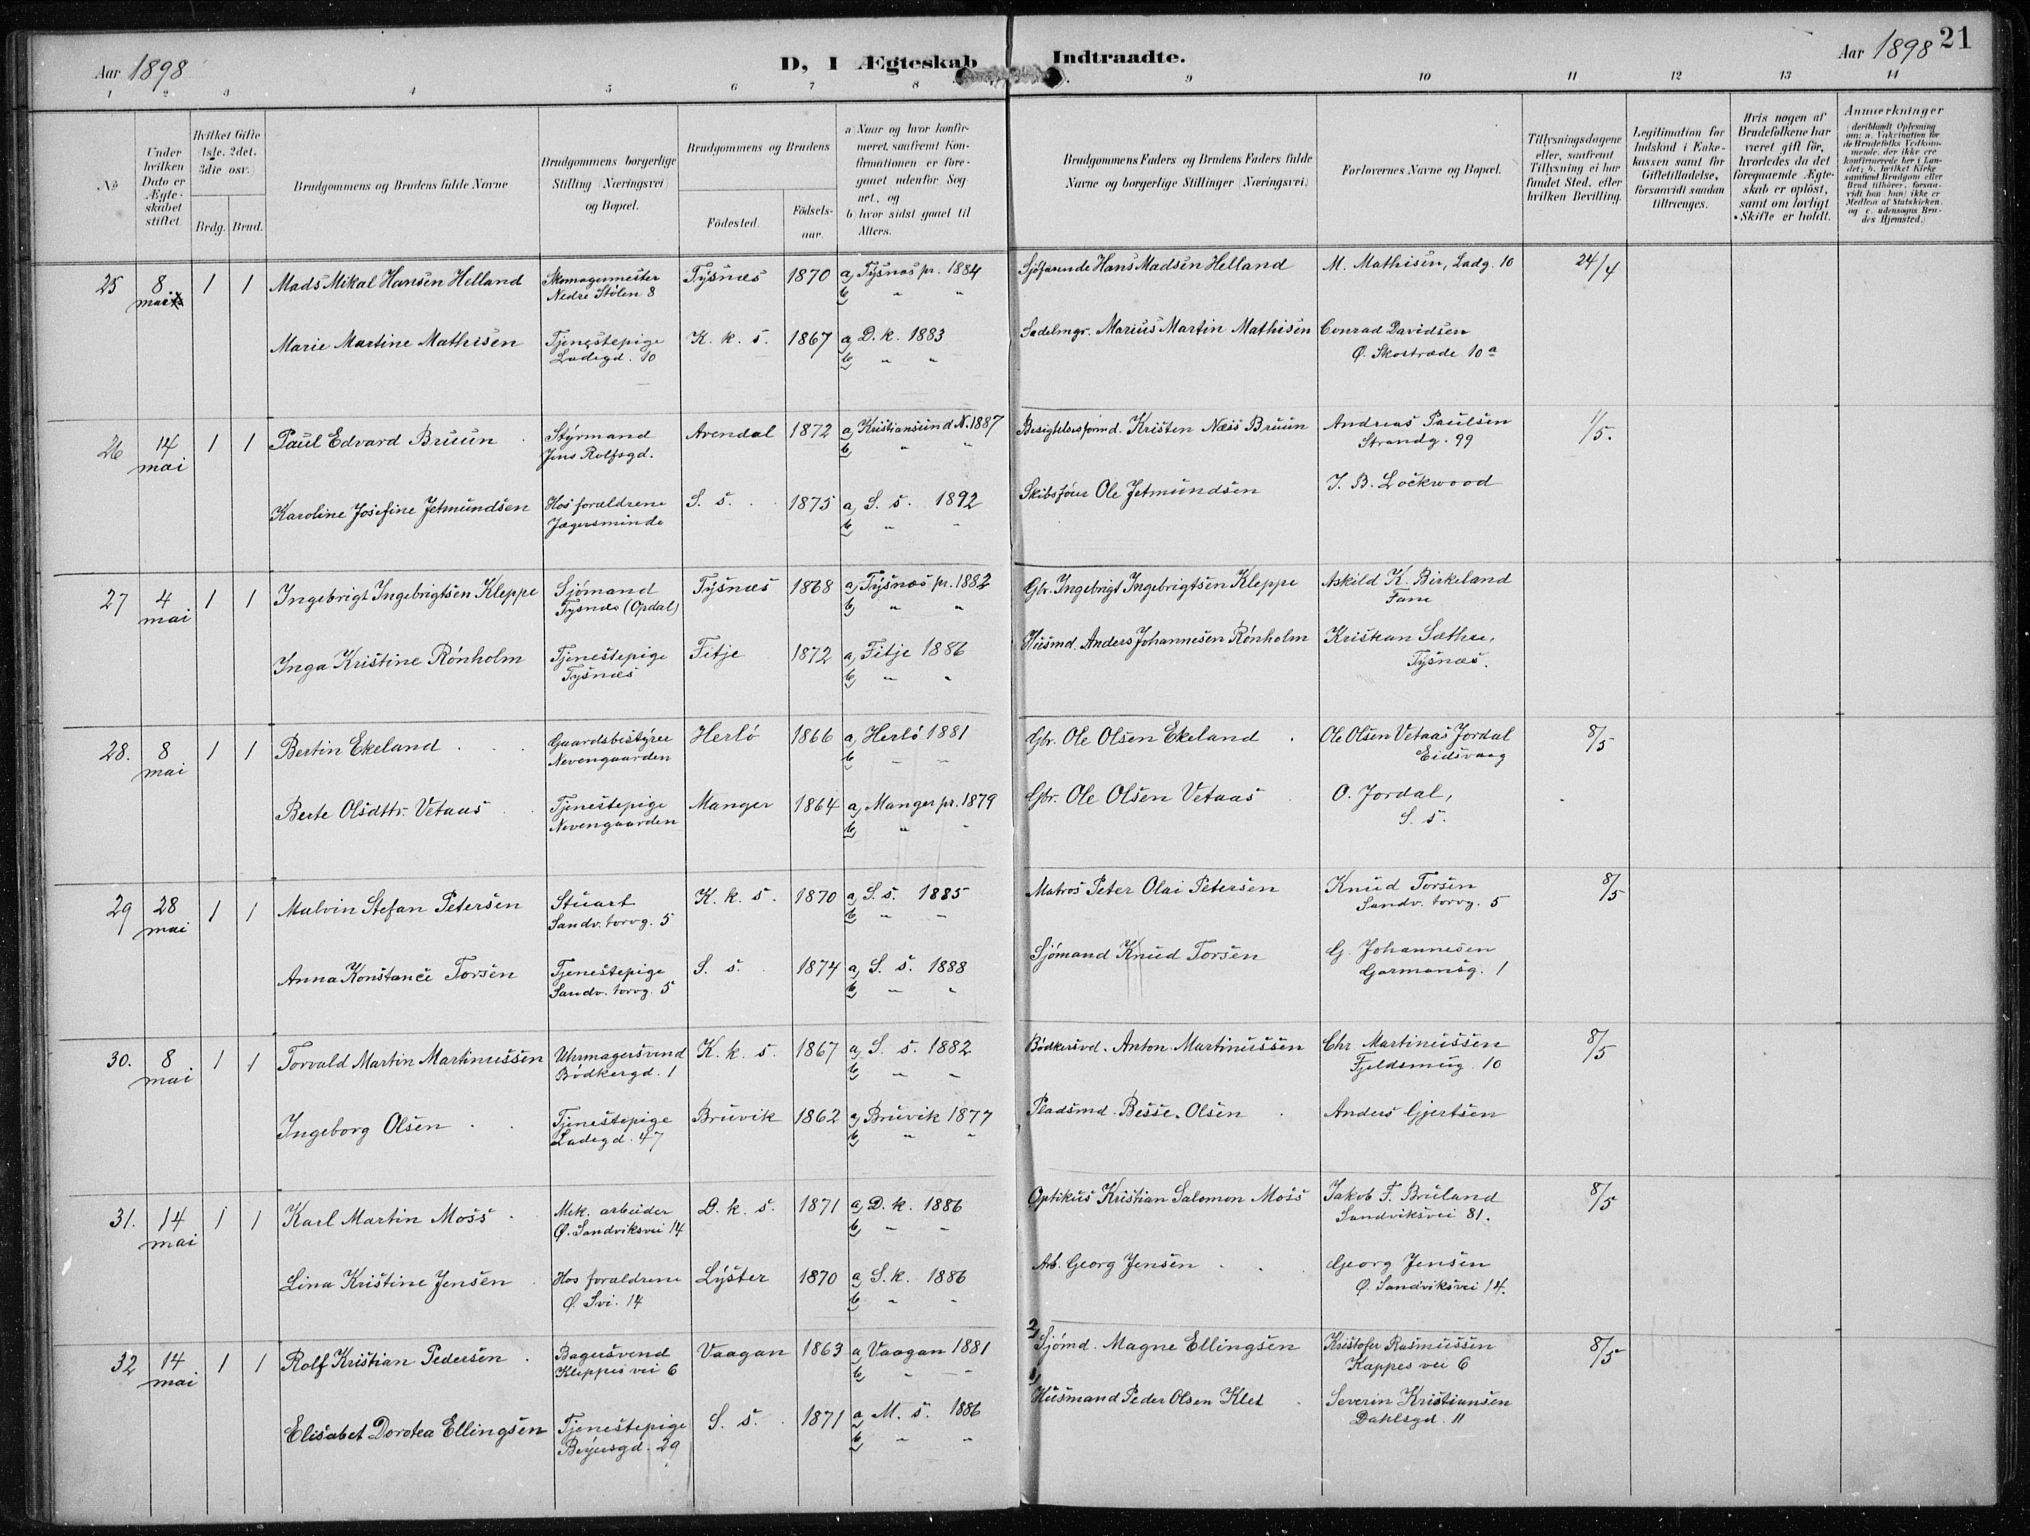 Aar 1898
D, I Ægteskab Indtraadte.
Aar 1898 21
1 2 3 4 5 6 7 8 9 10 11 12 13 14
No
Under hvilken Dato er Ægteskabet stiftet.
Hvilket Gifte (1ste. 2det. 3die osv.)
Brdg. Brud.
Brudgommens og Brudens fulde Navne
Brudgommens borgerlige Stilling (Næringsvei) og Bopæl.
Brudgommens og Brudens
Födested. Födsels-aar.
a) Naar og hvor konfirmeret, saafremt Konfirmationen er foregaaet udenfor Sognet, og
b) hvor sidst gaaet til Alters.
Brudgommens Faders og Brudens Faders fulde Navne og borgerlige Stillinger (Næringsvei)
Forlovernes Navne og Bopæl.
Tillysningsdagene eller, saafremt Tillysning ei har fundet Sted, efter hvilken Bevilling.
Legitimation for Indskud i Enkekassen samt for Giftetilladelse, forsaavidt saadan tiltrænges.
Hvis nogen af Brudefolkene har været gift før, hvorledes da det foregaaende Ægteskab er oplöst, samt om lovligt Skifte er holdt.
Anmærkninger
(deriblandt Oplysning om: a. Vakcination for de Brudefolks Vedkommende, der ikke ere konfirmerede her i Landet; b. hvilket Kirkesamfund Brudgom eller Brud tilhörer, forsaavidt han (hun) ikke er Medlem af Statskirken, og c. udensogns Brudes Hjemsted.)
25 8 mai 1 1 Mads Mikal Hansen Helland Skomagermester Tysnæs 1870 a) Tysnæs pr. 1884 Sjöfarende Hans Madsen Helland M. Mathisen, Ladg. 10 24/4
Nedre Stølen 8 b) " "
Marie Martine Mathisen Tjenestepige K. k. s. 1867 a) D. k. 1883 Sadelmgr. Marius Martin Mathisen Conrad Davidsen
Ladegd. 10 b) " " Ø. Skostræde 10 a
26 14 mai 1 1 Paul Edvard Bruun Styrmand Arendal 1872 a) Kristiansund N. 1887 Kristen Næss Bruun Andreas Paulsen 1/5.
Jens Rolfsgd. b) " " Strandg. 99
Karoline Josefine Jetmundsen Hos forældrene S. s. 1875 a) S. s. 1892 Skibsfører Ole Jetmundsen J. B. Lockwood
Jægersminde b) " "
27 4 mai 1 1 Ingebrigt Ingebrigtsen Kleppe Sjømand Tysnæs 1868 a) Tysnæs pr. 1882 Gbr. Ingebrigt Ingebrigtsen Kleppe Askild K. Birkeland
Tysnæs (Opdal) b) " " Fane
Inga Kristine Rønholm Tjenestepige Fitje 1872 a) Fitje 1886 Husmd. Anders Johannesen Rønholm Kristian Sæthre,
Tysnæs b) " " Tysnæs.
28. 8 mai 1 1 Bertin Ekeland Gaardsbestyrer Herlö 1866 a) Herlö 1881 Gbr. Ole Olsen Ekeland Ole Olsen Vetaas Jordal 8/5
Nevengaarden b) " " Eidsvaag
Berte Olsdttr. Vetaas Tjenestepige Manger 1864 a) Manger pr. 1879 Gbr. Ole Olsen Vetaas O. Jordal,
Nevengaarden b) " " S. s.
29 28 mai 1 1 Malvin Stefan Petersen Stuart K. k. s. 1870 a) S. s. 1885 Matros Peter Olai Petersen Knud Torsen 8/5
Sandv. torvg. 5 b) " " Sandv. torvg. 5
Anna Konstance Torsen Tjenestepige S. s. 1874 a) S. s. 1888 Sjømand Knud Torsen G. Johannesen
Sandv. torvg. 5 b) " " Garmansg. 1
30. 8 mai 1 1 Torvald Martin Martinussen Uhrmagersvend K. k. s. 1867 a) S. s. 1882 Bødkersvd. Anton Martinussen Chr Martinussen 8/5
Bødkergd. 1 b) " " Fjeldsmug 10
Ingeborg Olsen Tjenestepige Bruvik 1862 a) Bruvik 1877 Pladsmd. Besse Olsen Anders Gjertsen
Ladegd. 47 b) " "
31. 14 mai 1 1 Karl Martin Moss Mek. arbeider D. k. s. 1871 a) D. k. 1886 Optikus Kristian Salomon Moss Jakob F. Bruland 8/5
Ø. Sandviksvei 14 b) " " Sandviksvei 81.
Lina Kristine Jensen Hos forældrene Lyster 1870 a) S. k. 1886 Arb. Georg Jensen Georg Jensen
Ø. Svi. 14 b) " " Ø. Sandviksvei 14.
32 14 mai 1 1 Rolf Kristian Pedersen Bagersvend Vaagan 1863 a) Vaagan 1881 2) Sjømd. Magne Ellingsen Kristofer Rasmussen 8/5
Kleppes vei 6 b) " " Kappes vei 6
Elisabet Dorotea Ellingsen Tjenestepige S. s. 1871 a) M. s. 1886 1) Husmand Peder Olsen Klet Severin Kristiansen
Beyersgd. 29 b) " " Dahlsgd. 11